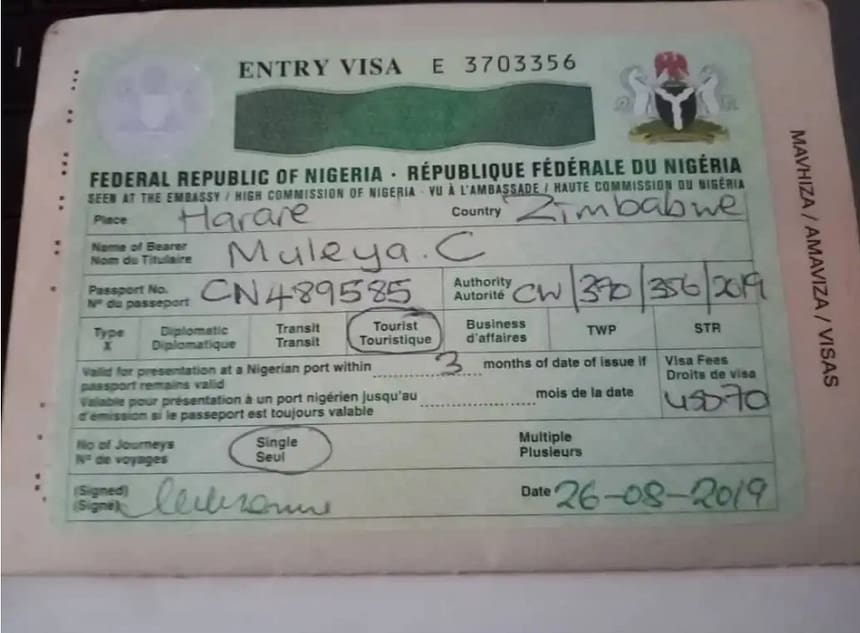 ENTRY VISA E 3703356
FEDERAL REPUBLIC OF NIGERIA · RÉPUBLIQUE FÉDÉRALE DU NIGÉRIA
SEEN AT THE EMBASSY / HIGH COMMISSION OF NIGERIA - VU À L'AMBASSADE / HAUTE COMMISSION DU NIGÉRIA
Place Harare Country Zimbabwe
Name of Bearer
Nom du Titulaire Muleya. C
Passport No. CN489585 Authority CW/390/356/2019
Nº du passeport Autorité
Type Diplomatic Transit Tourist Business TWP STR
X Diplomatique Transit Touristique d'affaires
Valid for presentation at a Nigerian port within 3 months of date of issue if Visa Fees
passport remains valid Droits de visa
Valable pour présentation à un port nigérien jusqu'au mois de la date USD70
d'émission si le passeport est toujours valable
No of Journeys Single Multiple
Nº de voyages Seul Plusieurs
(Signed) Date 26-08-2019
(Signé)
MAVHIZA / AMAVIZA / VISAS